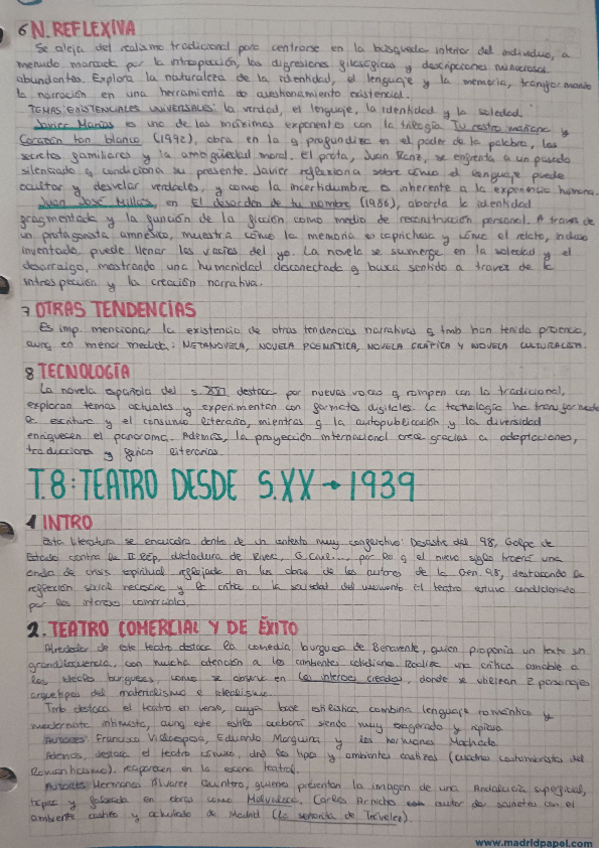 6 N. REFLEXIVA
Se aleja del realismo tradicional para centrarse en la búsqueda interior del individuo, a
menudo marcada por la introspección, las digresiones filosóficas y descripciones minuciosas
abundantes. Explora la naturaleza de la identidad, el lenguaje y la memoria, transformando
la narración en una herramienta de cuestionamiento existencial.
TEMAS EXISTENCIALES UNIVERSALES: la verdad, el lenguaje, la identidad y la soledad.
Javier Marías es uno de los máximos exponentes con la trilogía Tu rostro mañana y
Corazón tan blanco (1992), obra en la q profundiza en el poder de la palabra, los
secretos familiares y la ambigüedad moral. El prota, Juan Ranz, se enfrenta a un pasado
silenciado q condiciona su presente. Javier reflexiona sobre cómo el lenguaje puede
ocultar y desvelar verdades, y como la incertidumbre es inherente a la experiencia humana.
Juan José Millás, en El desorden de tu nombre (1986), aborda la identidad
fragmentada y la función de la ficción como medio de reconstrucción personal. A través de
un protagonista amnésico, muestra cómo la memoria es caprichosa y cómo el relato, incluso
inventado puede llenar los vacíos del yo. La novela se sumerge en la soledad y el
desarraigo, mostrando una humanidad desconectada q busca sentido a través de la
introspección y la creación narrativa.
7 OTRAS TENDENCIAS
Es imp. mencionar la existencia de otras tendencias narrativas q tmb han tenido presencia,
aunq en menor medida: METANOVELA, NOVELA POEMÁTICA, NOVELA GRÁFICA Y NOVELA CULTURALISTA.
8 TECNOLOGÍA
La novela española del s. XXI destaca por nuevas voces q rompen con lo tradicional,
exploran temas actuales y experimentan con formatos digitales. La tecnología ha transformado
la escritura y el consumo literario, mientras q la autopublicación y la diversidad
enriquecen el panorama. Además, la proyección internacional crece gracias a adaptaciones,
traducciones y ferias literarias.
T.8: TEATRO DESDE S.XX → 1939
1 INTRO
Esta literatura se encuadra dentro de un contexto muy conflictivo: Desastre del 98, Golpe de
Estado contra la II REP, dictadura de Rivera, G. Civil..., por lo q el nuevo siglo traerá una
onda de crisis espiritual reflejada en las obras de los autores de la Gen. 98, destacando la
reflexión social necesaria y la crítica a la sociedad del momento. El teatro estuvo condicionado
por los intereses comerciales.
2. TEATRO COMERCIAL Y DE ÉXITO
Alrededor de este teatro destaca la comedia burguesa de Benavente, quien proponía un texto sin
grandilocuencia, con mucha atención a los ambientes cotidianos. Realiza una crítica amable a
los ideales burgueses, como se observa en Los intereses creados, donde se utilizan 2 personajes
arquetipos del materialismo e idealismo.
Tmb destaca el teatro en verso, cuya base estilística combina lenguaje romántico y
modernista intimista, aunq este estilo acabará siendo muy exagerado y ripioso.
Autores: Francisco Villaespesa, Eduardo Marquina y los hermanos Machado.
Además, destaca el teatro cómico, dnd los tipos y ambientes castizos (cuadros costumbristas del
Romanticismo), reaparecen en la escena teatral.
Autores: Hermanos Álvarez Quintero, quienes presentan la imagen de una Andalucía superficial,
tópica y falseada en obras como Malvaloca. Carlos Arniches autor de sainetes con el
ambiente castizo y achulado de Madrid (La señorita de Trevélez).
www.madridpapel.com